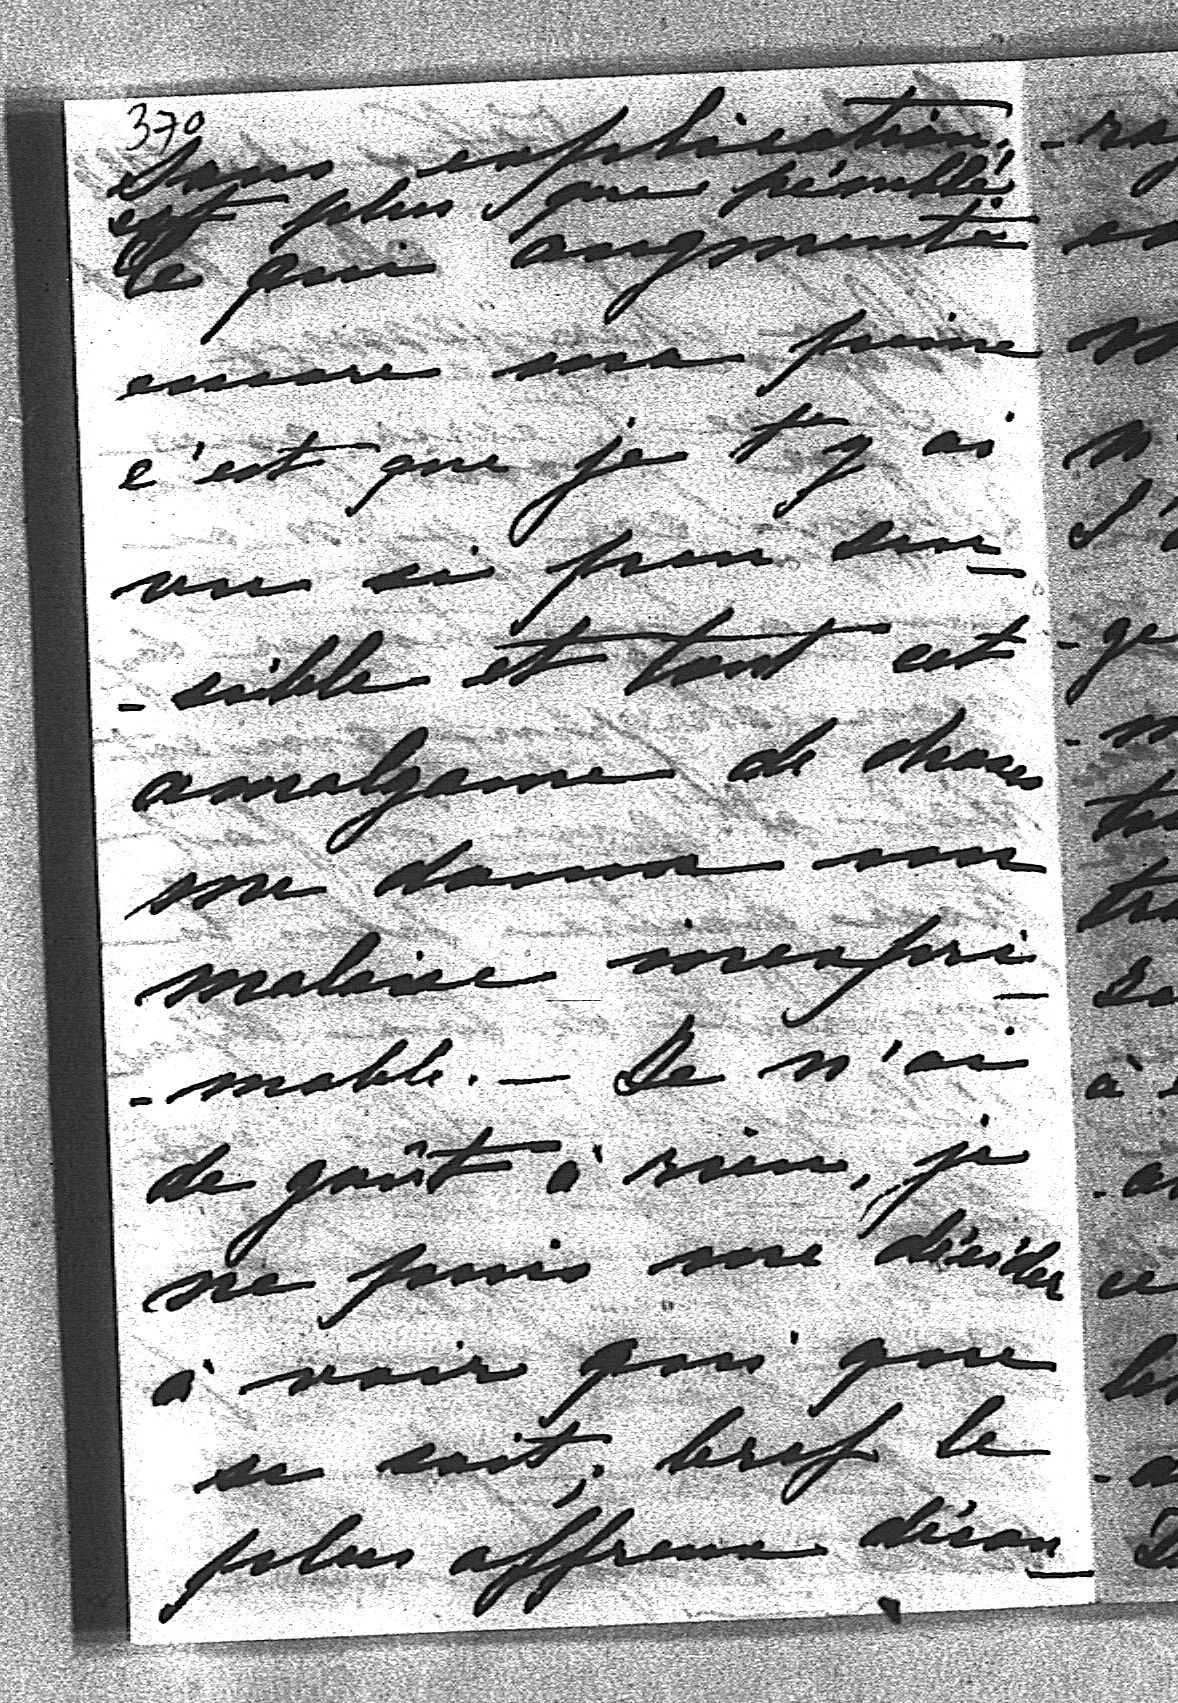 370
sans explication,
est plus que pénible.
Ce qui augmente
encore ma peine
c'est que je t'y ai
vu si peu sen_
-sible et tout cet
amalgame de choses
me donne un
malaise inexpri_
-mable. — Je n'ai
de goût à rien, je
ne puis me décider
à voir qui que
ce soit, bref le
plus affreux décou_